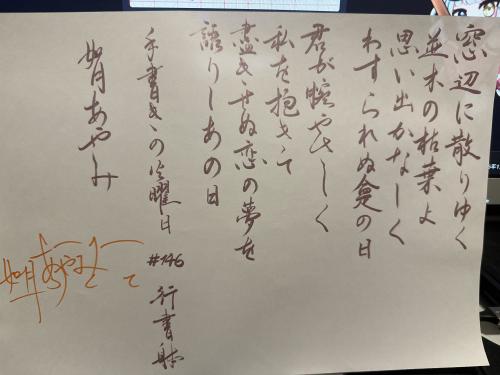 窓辺に散りゆく
並木の枯葉よ
思い出かなしく
わすられぬ夏の日
君が腕やさしく
私を抱きて
盡きせぬ恋の夢を
語りしあの日
手書きの火曜日 #146 行書体
如月あやみ
如月あやみ